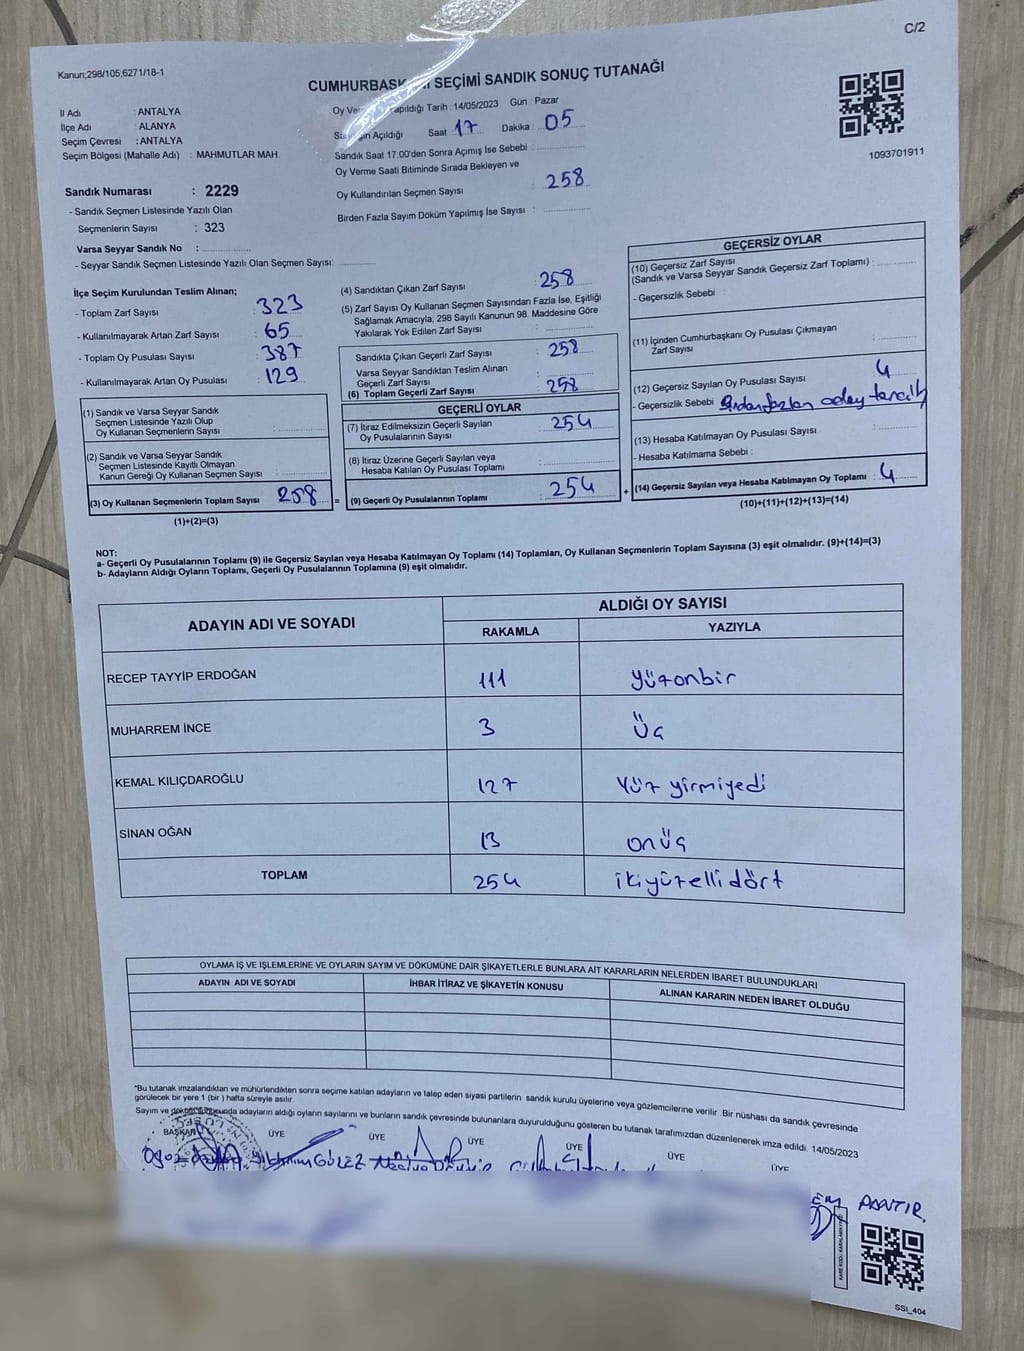 C/2
Kanun;298/105;6271/18-1
CUMHURBAŞK SEÇİMİ SANDIK SONUÇ TUTANAĞI
İl Adı : ANTALYA
İlçe Adı : ALANYA
Seçim Çevresi : ANTALYA
Seçim Bölgesi (Mahalle Adı) : MAHMUTLAR MAH.
Sandık Numarası : 2229
- Sandık Seçmen Listesinde Yazılı Olan
Seçmenlerin Sayısı : 323
Varsa Seyyar Sandık No :
- Seyyar Sandık Seçmen Listesinde Yazılı Olan Seçmen Sayısı:
Oy Ver apıldığı Tarih : 14/05/2023 Gün : Pazar
Açıldığı Saat 17 Dakika : 05
Sandık Saat 17:00'den Sonra Açımış İse Sebebi :
Oy Verme Saati Bitiminde Sırada Bekleyen ve
Oy Kullandırılan Seçmen Sayısı : 258
Birden Fazla Sayım Döküm Yapılmış İse Sayısı :
1093701911
İlçe Seçim Kurulundan Teslim Alınan;
- Toplam Zarf Sayısı : 323
- Kullanılmayarak Artan Zarf Sayısı : 65
- Toplam Oy Pusulası Sayısı : 387
- Kullanılmayarak Artan Oy Pusulası : 129
(1) Sandık ve Varsa Seyyar Sandık
Seçmen Listesinde Yazılı Olup
Oy Kullanan Seçmenlerin Sayısı :
(2) Sandık ve Varsa Seyyar Sandık
Seçmen Listesinde Kayıtlı Olmayan
Kanun Gereği Oy Kullanan Seçmen Sayısı :
(3) Oy Kullanan Seçmenlerin Toplam Sayısı 258
(1)+(2)=(3)
(4) Sandıktan Çıkan Zarf Sayısı : 258
(5) Zarf Sayısı Oy Kullanan Seçmen Sayısından Fazla İse, Eşitliği
Sağlamak Amacıyla; 298 Sayılı Kanunun 98. Maddesine Göre
Yakılarak Yok Edilen Zarf Sayısı :
Sandıkta Çıkan Geçerli Zarf Sayısı : 258
Varsa Seyyar Sandıktan Teslim Alınan
Geçerli Zarf Sayısı :
(6) Toplam Geçerli Zarf Sayısı : 258
GEÇERLİ OYLAR
(7) İtiraz Edilmeksizin Geçerli Sayılan
Oy Pusulalarının Sayısı : 254
(8) İtiraz Üzerine Geçerli Sayılan veya
Hesaba Katılan Oy Pusulası Toplamı :
= (9) Geçerli Oy Pusulalarının Toplamı : 254
GEÇERSİZ OYLAR
(10) Geçersiz Zarf Sayısı
(Sandık ve Varsa Seyyar Sandık Geçersiz Zarf Toplamı) :
- Geçersizlik Sebebi :
(11) İçinden Cumhurbaşkanı Oy Pusulası Çıkmayan
Zarf Sayısı :
(12) Geçersiz Sayılan Oy Pusulası Sayısı : 4
- Geçersizlik Sebebi aday tercih
(13) Hesaba Katılmayan Oy Pusulası Sayısı :
- Hesaba Katılmama Sebebi :
+ (14) Geçersiz Sayılan veya Hesaba Katılmayan Oy Toplamı : 4
(10)+(11)+(12)+(13)=(14)
NOT:
a- Geçerli Oy Pusulalarının Toplamı (9) ile Geçersiz Sayılan veya Hesaba Katılmayan Oy Toplamı (14) Toplamları, Oy Kullanan Seçmenlerin Toplam Sayısına (3) eşit olmalıdır. (9)+(14)=(3)
b- Adayların Aldığı Oyların Toplamı, Geçerli Oy Pusulalarının Toplamına (9) eşit olmalıdır.
ADAYIN ADI VE SOYADI ALDIĞI OY SAYISI
RAKAMLA YAZIYLA
RECEP TAYYİP ERDOĞAN 111 yüzonbir
MUHARREM İNCE 3 Üç
KEMAL KILIÇDAROĞLU 127 Yüz yirmiyedi
SİNAN OĞAN 13 onüç
TOPLAM 254 ikiyüzellidört
OYLAMA İŞ VE İŞLEMLERİNE VE OYLARIN SAYIM VE DÖKÜMÜNE DAİR ŞİKAYETLERLE BUNLARA AİT KARARLARIN NELERDEN İBARET BULUNDUKLARI
ADAYIN ADI VE SOYADI İHBAR İTİRAZ VE ŞİKAYETİN KONUSU ALINAN KARARIN NEDEN İBARET OLDUĞU
*Bu tutanak imzalandıktan ve mühürlendikten sonra seçime katılan adayların ve talep eden siyasi partilerin sandık kurulu üyelerine veya gözlemcilerine verilir. Bir nüshası da sandık çevresinde
görülecek bir yere 1 (bir ) hafta süreyle asılır.
Sayım ve adayların aldığı oyların sayılarını ve bunların sandık çevresinde bulunanlara duyurulduğunu gösteren bu tutanak tarafımızdan düzenlenerek imza edildi. 14/05/2023
BAŞKAN ÜYE ÜYE ÜYE ÜYE ÜYE ÜYE
GÜLEZ
PANTIR
SSI_404